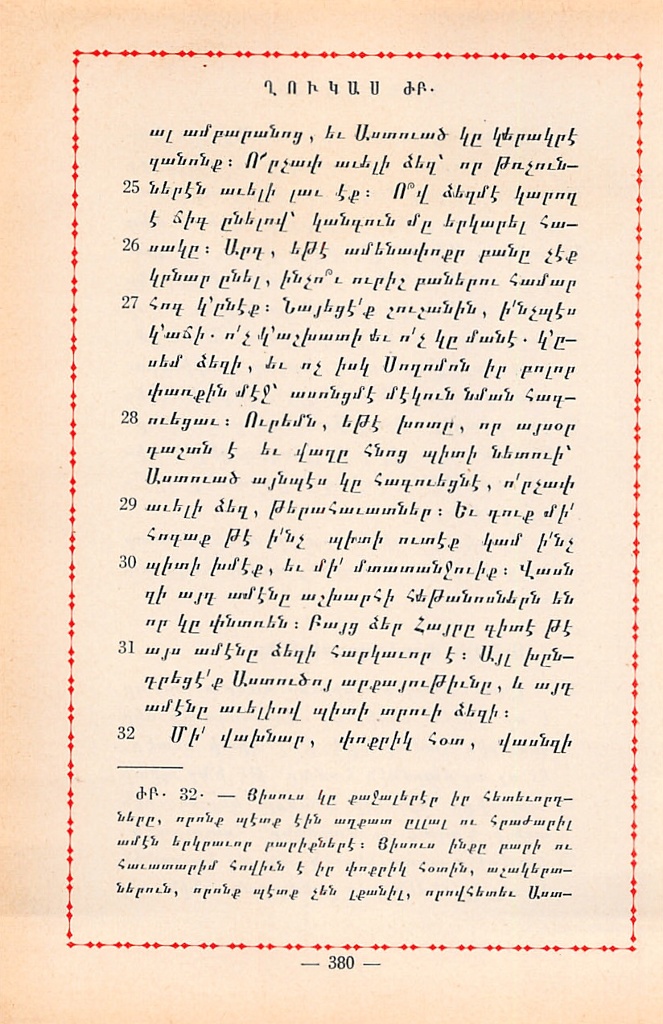 ՂՈՒԿԱՍ ԺԲ.
ալ ամբարանոց, եւ Աստուած կը կերակրէ
զանոնք։ Ո՜րչափ աւելի ձեզ՝ որ թռչուն–
25 ներէն աւելի լաւ էք։ Ո՞վ ձեզմէ կարող
է ճիգ ընելով՝ կանգուն մը երկարել հա–
26 սակը։ Արդ, եթէ ամենափոքր բանը չէք
կրնար ընել, ինչո՞ւ ուրիշ բաներու համար
27 հոգ կ՚ընէք։ Նայեցէ՛ք շուշանին, ի՛նչպէս
կ՚աճի. ո՛չ կ՚աշխատի եւ ո՛չ կը մանէ. կ՚ը–
սեմ ձեզի, եւ ոչ իսկ Սողոմոն իր բոլոր
փառքին մէջ՝ ասոնցմէ մէկուն նման հագ–
28 ուեցաւ։ Ուրեմն, եթէ խոտը, որ այսօր
դաշտն է եւ վաղը հնոց պիտի նետուի՝
Աստուած այնպէս կը հագուեցնէ, ո՛րչափ
29 աւելի ձեզ, թերահաւատներ։ Եւ դուք մի՛
հոգաք թէ ի՛նչ պիտի ուտէք կամ ի՛նչ
30 պիտի խմէք, եւ մի՛ մտատանջուիք։ Վասն
զի այդ ամէնը աշխարհի հեթանոսներն են
որ կը փնտռեն։ Բայց ձեր Հայրը գիտէ թէ
31 այս ամէնը ձեզի հարկաւոր է։ Այլ խըն–
դրեցէ՛ք Աստուծոյ արքայութիւնը, և այդ
ամէնը աւելիով պիտի տրուի ձեզի։
32 Մի՛ վախնար, փոքրիկ հօտ, վասնզի
ԺԲ. 32. — Յիսուս կը քաջալերէր իր հետեւորդ–
ները, որոնք պէտք էին աղքատ ըլլալ ու հրաժարիլ
ամէն երկրաւոր բարիքներէ։ Յիսուս ինքը բարի ու
հաւատարիմ հովիւն է իր փոքրիկ հօտին, աշակերտ–
ներուն, որոնք պէտք չեն լքանիլ, որովհետեւ Աստ–
— 380 —